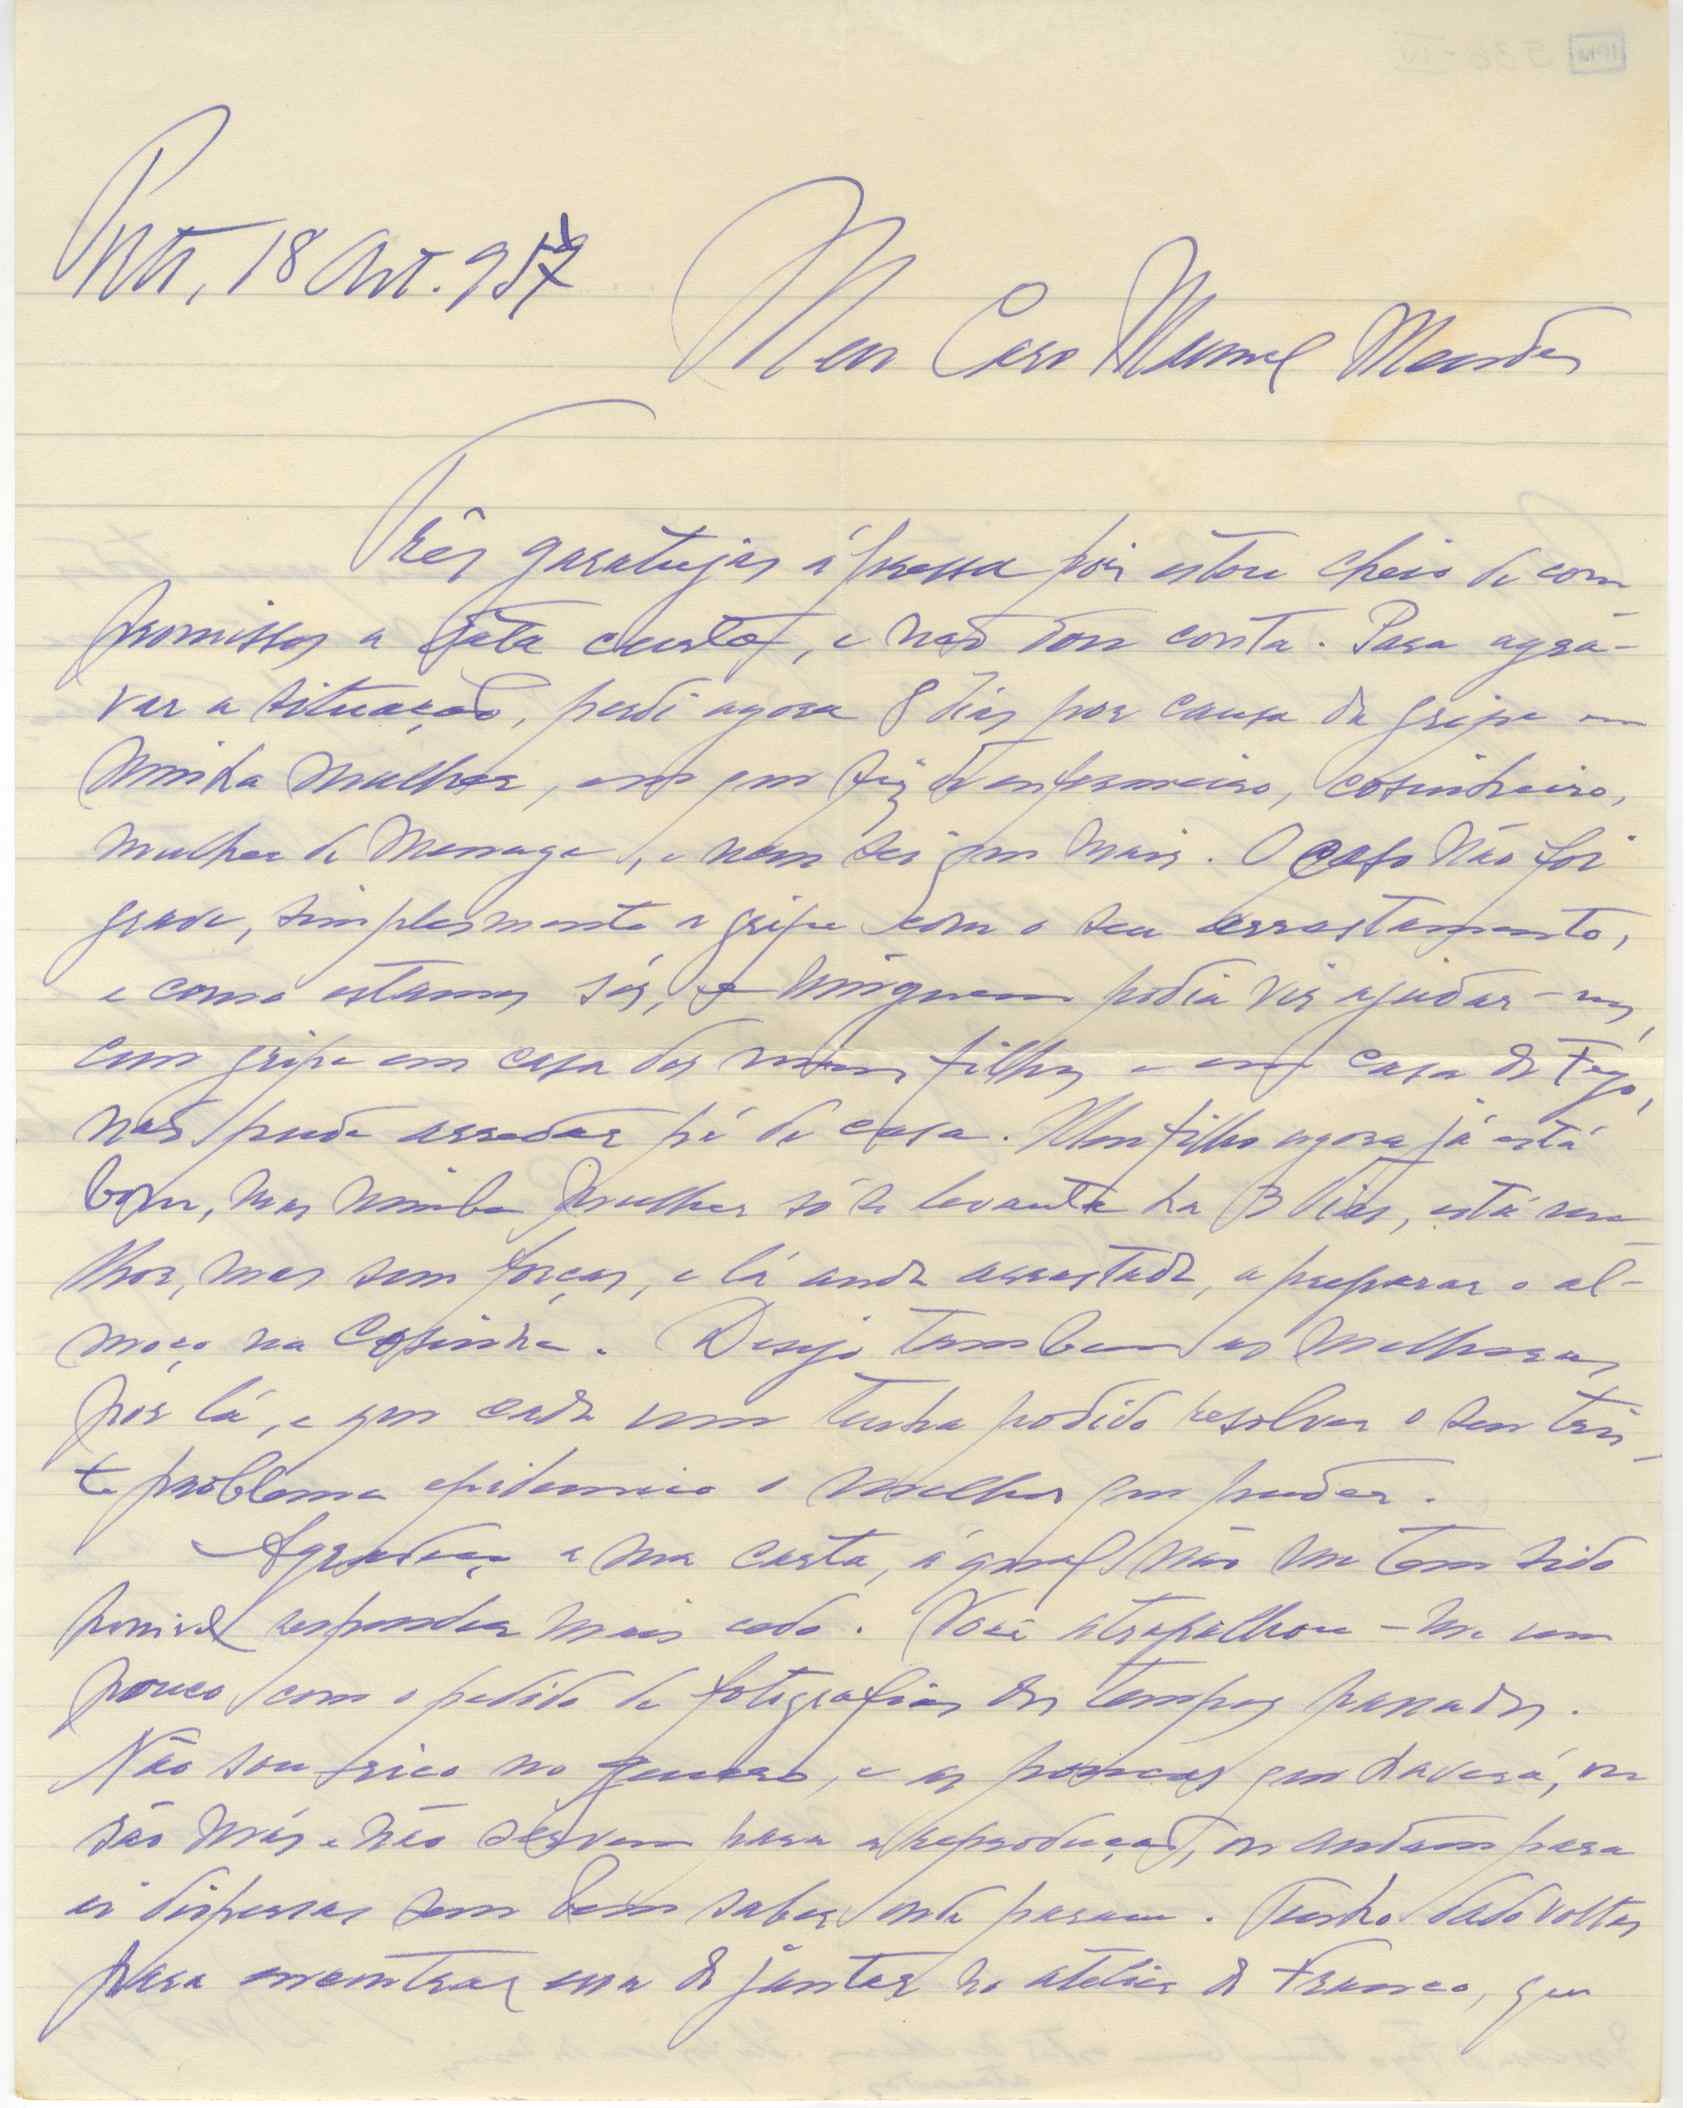 Porto, 18 Out. 957
Meu Caro Manuel Mendes
Três garatujas á pressa pois estou cheio de com
promissos a data certa, e não dou conta. Para agra-
var a situação, perdi agora 8 dias por causa da gripe em
minha mulher, em que fiz de enfermeiro, cosinheiro,
mulher de menage, e nem sei que mais. O caso não foi
grave, simplesmente a gripe com o seu arrastamento,
e como estamos sós, e ninguem podia vir ajudar-nos,
com gripe em casa dos meus filhos e em casa do
não pude arredar pé de casa. Meu filho agora já está
bom, mas minha mulher só se levanta ha 3 dias, está me-
lhor, mas sem forças, e lá anda arrastada, a preparar o al-
moço na cosinha. Desejo tambem as melhoras
por lá, e que cada um tenha podido resolver o seu tris-
te problema epidemico o melhor que puder.
Agradeço a sua carta, á qual não me tem sido
possivel responder mais cedo. Você atrapalhou-me um
pouco com o pedido de fotografias dos tempos passados.
Não sou rico no genero, e as poucas que haverá, ou
são más e não servem para a reprodução, ou andam para
aí dispersas sem bem saber onde param. Tenho dado voltas
para encontrar essa do jantar no atelier do Franco, que